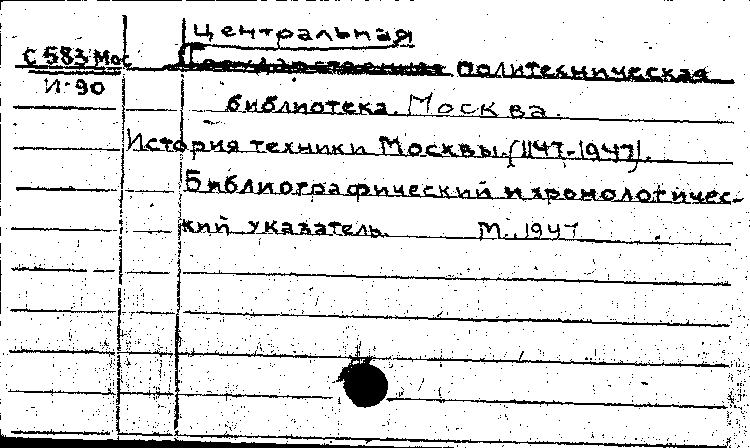 Центральная
С 583 Мос Государственная политехническая
И-90
библиотека. Москва.
История техники Москвы. (1147-1947).
Библиографический и хронологичес-
кий указатель. М., 1947